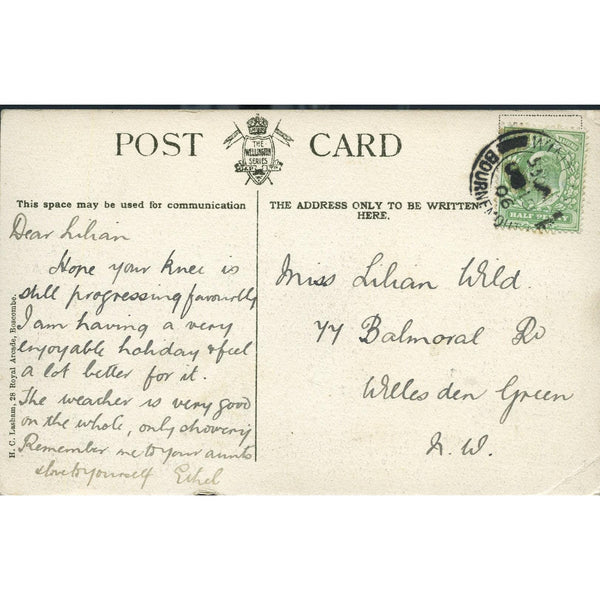 POST CARD
THE
WELLINGTON
SERIES
This space may be used for communication
THE ADDRESS ONLY TO BE WRITTEN
HERE.
Dear Lilian
Hope your knee is
still progressing favourably
I am having a very
enjoyable holiday & feel
a lot better for it.
The weather is very good
on the whole, only showery
Remember me to your aunts
& love to yourself Ethel
Miss Lilian Wild.
77 Balmoral Rd
Willesden Green
N.W.
HALF PENNY
BOURNEMOUTH
H. C. Lasham, 28 Royal Arcade, Boscombe.